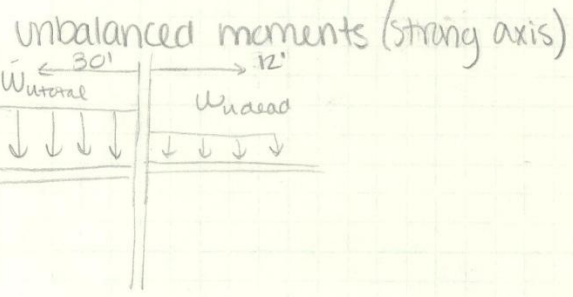 unbalanced moments (strong axis)
30' 12'
Wutotal
Wudead